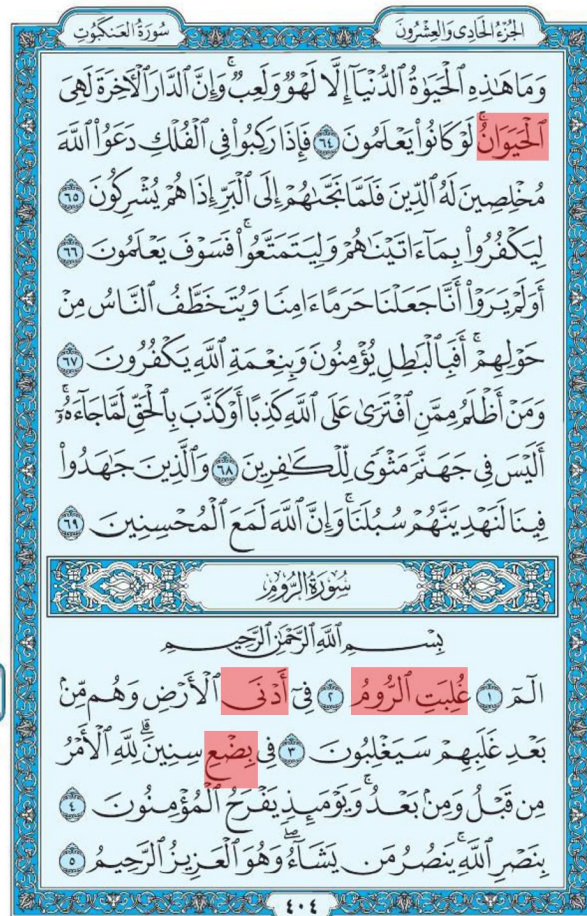 الجُزْءُ الحَادِي وَالعِشْرُونَ سُورَةُ العَنكَبُوتِ
وَمَا هَٰذِهِ ٱلْحَيَوٰةُ ٱلدُّنْيَآ إِلَّا لَهْوٌ وَلَعِبٌ ۚ وَإِنَّ ٱلدَّارَ ٱلْءَاخِرَةَ لَهِىَ
ٱلْحَيَوَانُ ۚ لَوْ كَانُوا۟ يَعْلَمُونَ ٦٤ فَإِذَا رَكِبُوا۟ فِى ٱلْفُلْكِ دَعَوُا۟ ٱللَّهَ
مُخْلِصِينَ لَهُ ٱلدِّينَ فَلَمَّا نَجَّىٰهُمْ إِلَى ٱلْبَرِّ إِذَا هُمْ يُشْرِكُونَ ٦٥
لِيَكْفُرُوا۟ بِمَآ ءَاتَيْنَٰهُمْ وَلِيَتَمَتَّعُوا۟ ۖ فَسَوْفَ يَعْلَمُونَ ٦٦
أَوَلَمْ يَرَوْا۟ أَنَّا جَعَلْنَا حَرَمًا ءَامِنًا وَيُتَخَطَّفُ ٱلنَّاسُ مِنْ
حَوْلِهِمْ ۚ أَفَبِٱلْبَٰطِلِ يُؤْمِنُونَ وَبِنِعْمَةِ ٱللَّهِ يَكْفُرُونَ ٦٧
وَمَنْ أَظْلَمُ مِمَّنِ ٱفْتَرَىٰ عَلَى ٱللَّهِ كَذِبًا أَوْ كَذَّبَ بِٱلْحَقِّ لَمَّا جَآءَهُۥٓ ۚ
أَلَيْسَ فِى جَهَنَّمَ مَثْوًى لِّلْكَٰفِرِينَ ٦٨ وَٱلَّذِينَ جَٰهَدُوا۟
فِينَا لَنَهْدِيَنَّهُمْ سُبُلَنَا ۚ وَإِنَّ ٱللَّهَ لَمَعَ ٱلْمُحْسِنِينَ ٦٩
سُورَةُ الرُّومِ
بِسْمِ ٱللَّهِ ٱلرَّحْمَٰنِ ٱلرَّحِيمِ
الٓمٓ ١ غُلِبَتِ ٱلرُّومُ ٢ فِىٓ أَدْنَى ٱلْأَرْضِ وَهُم مِّنۢ
بَعْدِ غَلَبِهِمْ سَيَغْلِبُونَ ٣ فِى بِضْعِ سِنِينَ ۗ لِلَّهِ ٱلْأَمْرُ
مِن قَبْلُ وَمِنۢ بَعْدُ ۚ وَيَوْمَئِذٍ يَفْرَحُ ٱلْمُؤْمِنُونَ ٤
بِنَصْرِ ٱللَّهِ ۚ يَنصُرُ مَن يَشَآءُ ۖ وَهُوَ ٱلْعَزِيزُ ٱلرَّحِيمُ ٥
٤٠٤